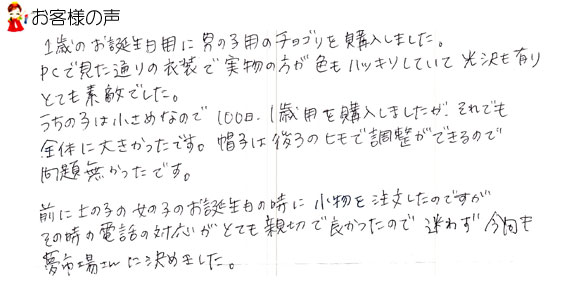 お客様の声
1歳のお誕生日用に男の子用のチョゴリを購入しました。
PCで見た通りの衣装で実物の方が色もハッキリしていて光沢も有り
とても素敵でした。
うちの子は小さめなので100日、1歳用を購入しましたが、それでも
全体に大きかったです。帽子は後ろのヒモで調整ができるので
問題無かったです。
前に上の子の女の子のお誕生日の時に小物を注文したのですが
その時の電話の対応がとても親切で良かったので迷わず今回も
夢市場さんに決めました。